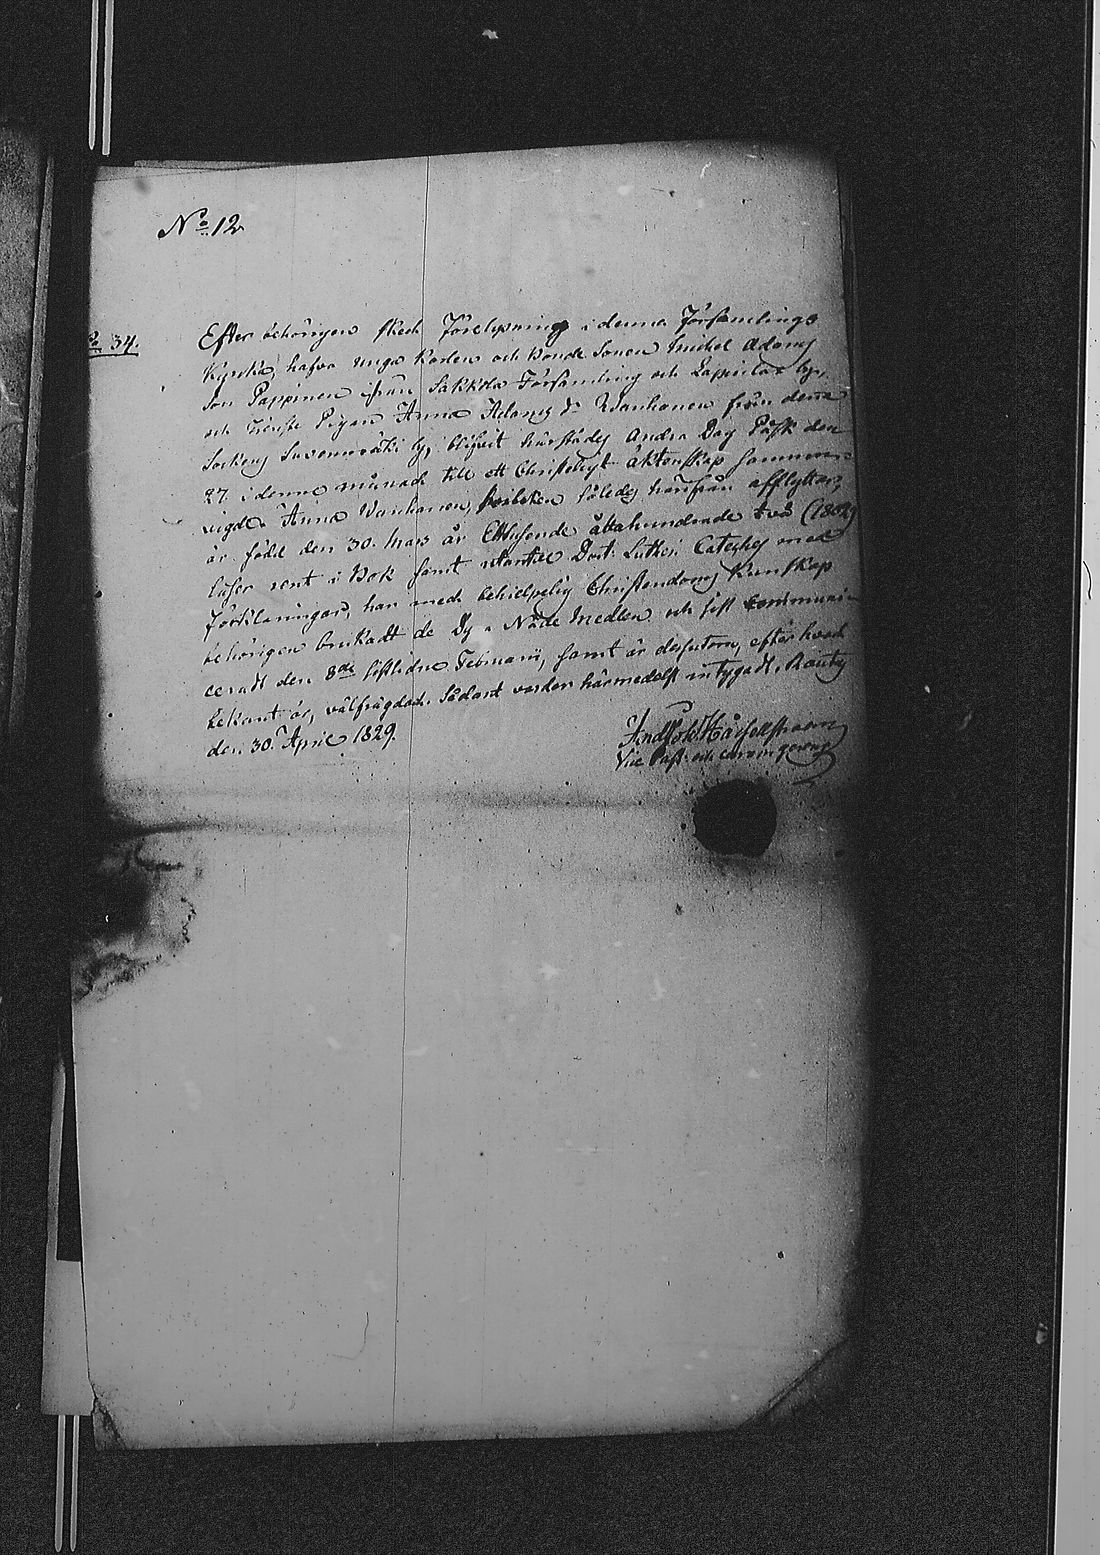 No 12
No 34.
Efter behörigen skedd Förelysning i denna Församlings
Kyrka, hafva unga Karlen och Bonde Sonen Michel Adams
Son Pappinen ifrån Sakkola Församling och Lapinlax by,
och Pigan Anna Adams dr Wanhanen från denna
Sockens Suvenmäki by, blifvit härstädes Andra Dag Påsk den
27. i denna månad till ett Christeligt äktenskap samman-
vigde. Anna Wanhanen, hvilken således härifrån afflyttar,
är född den 30. Mars år Ettusende åttahundrade två (1802)
läser rent i Bok samt utantill Doct: Lutheri Cateches med
förklaringar, har med behielpelig Christendoms Kunskap
behörigen brukadt de Dyra Nåde Medlen och sist communi-
ceradt den 8de sistlidne Februarii, samt är dessutom, efter hvad
bekant är, välfrägdad. Sådant varder härmedelst intygadt. Rautus
den 30. April 1829.
Vice Past: och